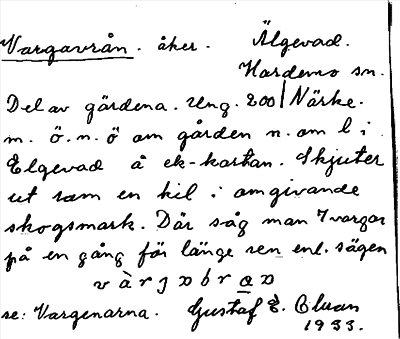 Vargavrån. åker. Älgevad.
Hardemo sn.
Del av gärdena. Ung. 200 Närke.
m. ö.n.ö om gården n. om l i
Elgevad å ek-kartan. Skjuter
ut som en kil i omgivande
skogsmark. Där såg man 7 vargar
på en gång för länge sen enl. sägen
se: Vargenarna. Gustaf E.
1933.